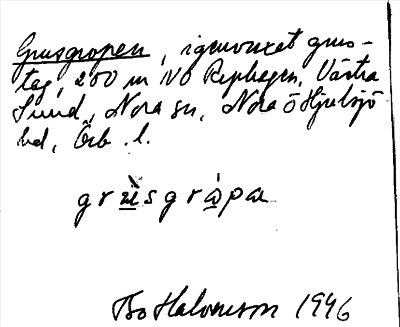 Grusgropen, igenvuxet grus-
tag, 200 m NO Rephagen, Västra
Sund, Nora sn, Nora o Hjulsjö
bd, Örb. l.
grùsgròpa
Bo Halvarson 1946